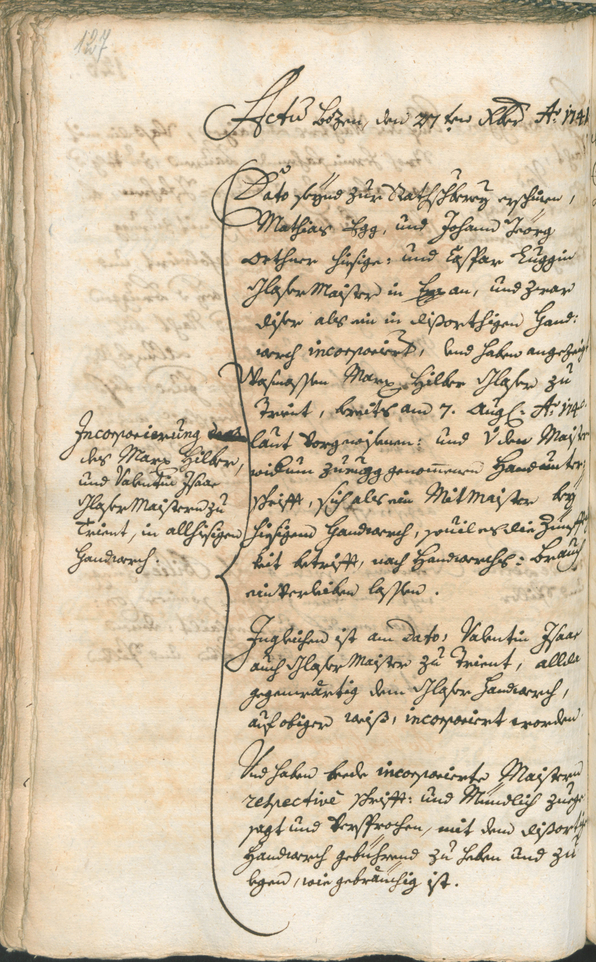 127
Actu Bozen, den 27ten Xber Ao 174
Dato seynd zur Rathschbery erschinen,
Mathias Egg, und Johann Jeorg
Orthner hiesige: und Caspar Luggin
Glaser Maister in an, und zwar
diser als ein in dißorthigen Hand:
werch incorporiert, und haben angezeigt
Wasmassen Marx Hilber Glaser zu
Trient, bereits am 7. Aug: Ao 174
laut vorgewisenen: und v den Maister
widum zurugg genommenen Handunter:
schrifft, sich als ein Mit Maister bey
hiesigem Handwerch, souil es die Zunfft
keit betrifft, nach Handwerchs: Brauch
einverleiben lassen.
Incorporierung
des Marx Hilber,
und Valentin Isaac
Glaser Maistern zu
Trient, in allhiesigen
Handwerch.
Ingleichen ist am Dato, Valentin Isaac
auch Glaser Maister zu Trient, alda
gegenwärtig dem Glaser Handwerch,
auf obiger weiß, incorporiert worden
Und haben beede incorporierte Maistern
respectivè schrifft: und Mündlich zuege
sagt und versprochen, mit dem dißorth
Handwerch gebührend zu heben und zu
legen, wie gebräuchig ist.